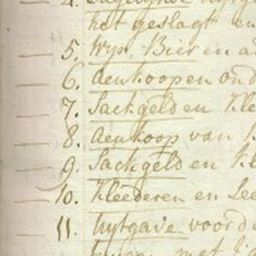 4.
het geslagt en
5. Wyn. Bier en a
6. Aenkoopen ond
7. Sackgeld en Kle
8. Aenkoop van
9. Sackgeld en Kl
10. Kleederen en Lee
11. Uytgave voord